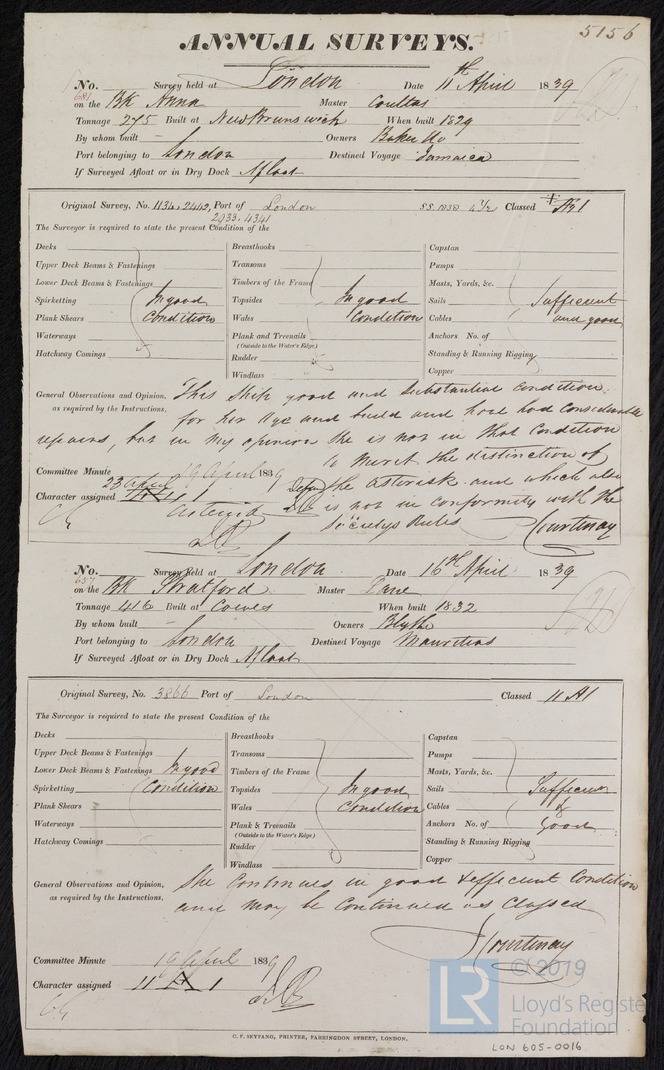 5156
ANNUAL SURVEYS.
No. 681 Survey held at London Date 11th April 1839
on the Bk Anna Master Coultas
Tonnage 275 Built at New Brunswick When built 1829
By whom built – Owners Baker &Co
Port belonging to London Destined Voyage Jamaica
If Surveyed Afloat or in Dry Dock Afloat
Original Survey, No. 1134. 2442, Port of London SS. 1838 4 1/2 Classed Æ1
2933. 4341
The Surveyor is required to state the present Condition of the
Decks
Upper Deck Beams & Fastenings
Lower Deck Beams & Fastenings
Spirketting In good
Plank Shears Condition
Waterways
Hatchway Comings
Breasthooks
Transoms
Timbers of the Frame
Topsides In good
Wales Condition
Plank and Treenails
(Outside to the Water's Edge)
Rudder
Windlass
Capstan
Pumps
Masts, Yards, &c.
Sails Sufficient
Cables and good
Anchors No. of
Standing & Running Rigging
Copper
General Observations and Opinion, This Ship good and substantial condition
as required by the Instructions. for her Age and build and have had considerable
repairs, but in my opinion she is not in that condition
to merit the distinction of
Committee Minute 19 April 1839
23 April
the asterisk and which also
Character assigned
is not in conformity with the
Societys Rules Courtenay
No. 657 Survey held at London Date 16th April 1839
on the Bk Stratford Master Lane
Tonnage 416 Built at Cowes When built 1832
By whom built – Owners Blythe
Port belonging to London Destined Voyage Mauritius
If Surveyed Afloat or in Dry Dock Afloat
Original Survey, No. 3866 Port of London Classed 11 A1
The Surveyor is required to state the present Condition of the
Decks
Upper Deck Beams & Fastenings
Lower Deck Beams & Fastenings In good
Spirketting Condition
Plank Shears
Waterways
Hatchway Comings
Breasthooks
Transoms
Timbers of the Frame
Topsides In good
Wales Condition
Plank & Treenails
(Outside to the Water's Edge)
Rudder
Windlass
Capstan
Pumps
Masts, Yards, &c.
Sails Sufficient
Cables &
Anchors No. of Good
Standing & Running Rigging
Copper
General Observations and Opinion, She Continues in good & efficient Condition
as required by the Instructions. and may be Continued as Classed
Courtenay
Committee Minute 19 April 1839
Character assigned 11 A 1
C. F. SEYFANG, PRINTER, FARRINGDON STREET, LONDON.
LR © 2019
Lloyd's Register
Foundation
LON 605-0016